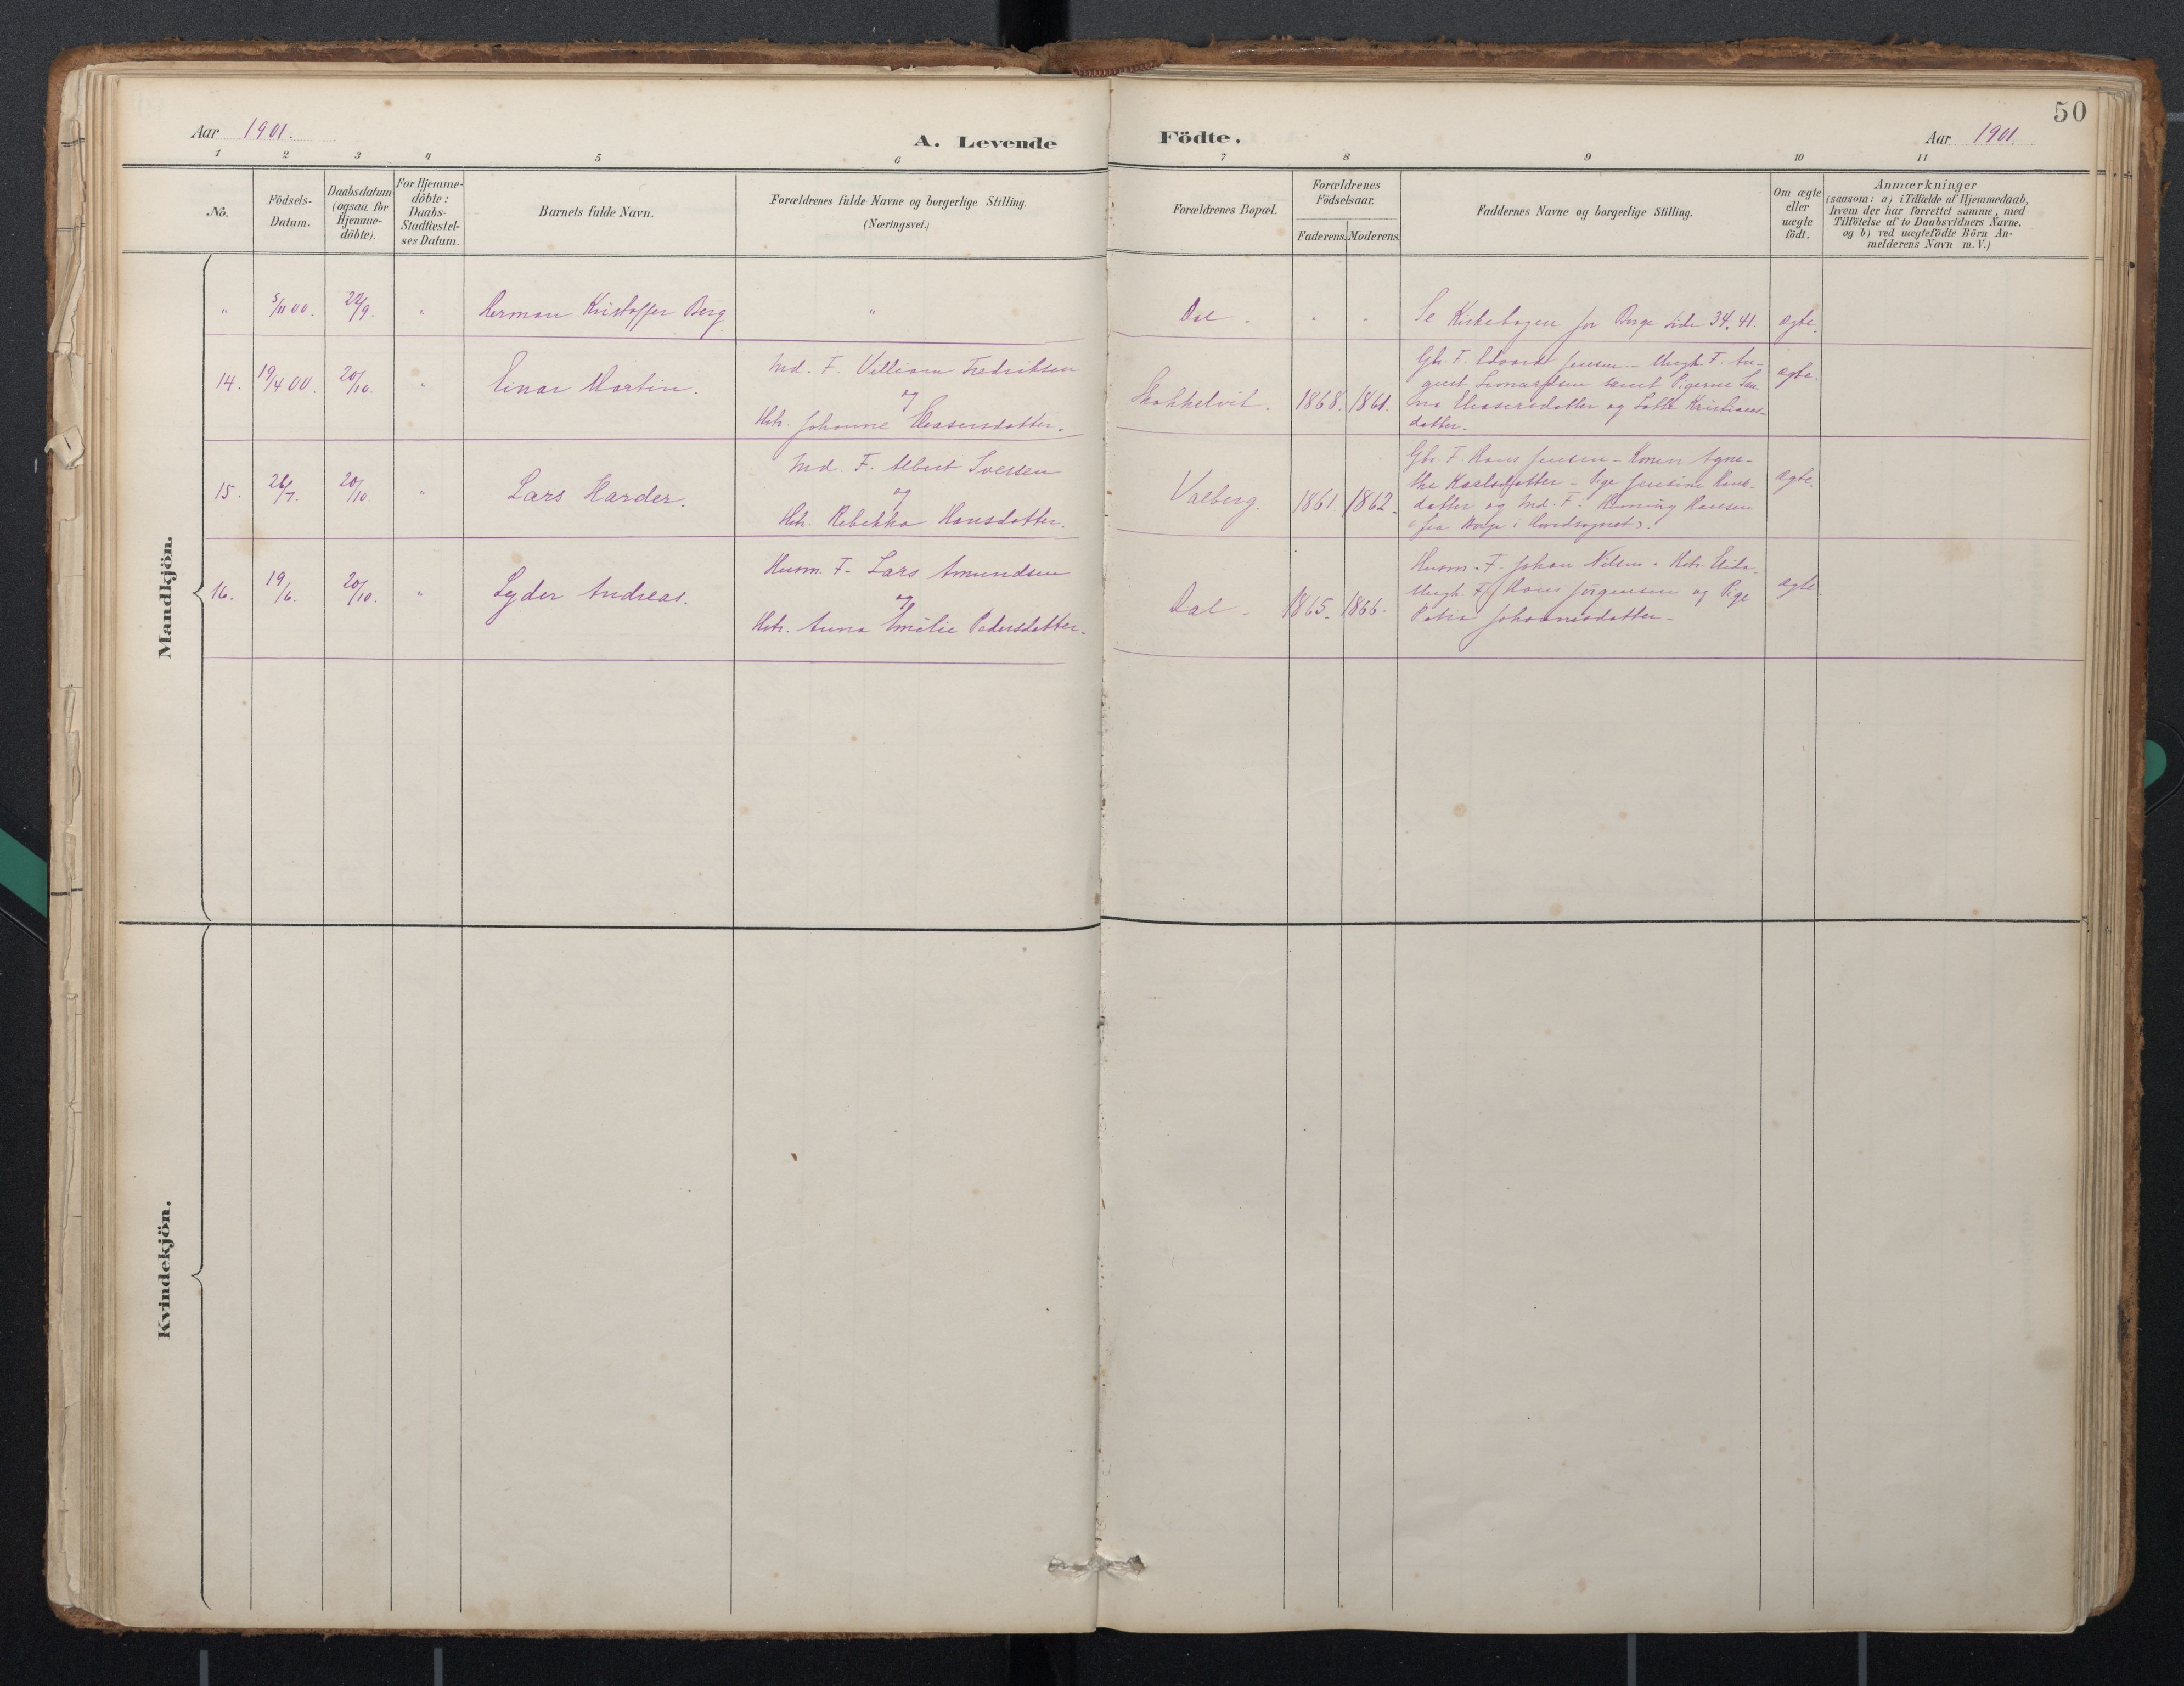 50
Aar 1901.
A. Levende Födte.
Aar 1901.
1 2 3 4 5 6 7 8 9 10 11
No.
Födsels-
Datum.
Daabsdatum
(ogsaa for
Hjemme-
döbte).
For Hjemme-
döbte:
Daabs-
Stadfæstel-
ses Datum.
Barnets fulde Navn.
Forældrenes fulde Navne og borgerlige Stilling.
(Næringsvei.)
Forældrenes Bopæl.
Forældrenes
Födselsaar.
Faderens. Moderens.
Faddernes Navne og borgerlige Stilling.
Om ægte
eller
uægte
födt.
Anmærkninger
(saasom: a) i Tilfælde af Hjemmedaab,
hvem der har forrettet samme, med
Tilföielse af to Daabsvidners Navne.
og b) ved uægtefödte Börn An-
melderens Navn m. V.)
Mandkjön.
" 5/11 00. 22/9. " Herman Kristoffer Berg " Dal - " " Se Kirkebogen for Borge side 34. 41. ægte.
14. 19/4 00. 20/10. " Einar Martin.
Md. F. Villiam Fredriksen
og
Hstr. Johanne Eleasersdatter.
Skokkelvik. 1868. 1861.
Gbr. F. Edvard Jensen - Ungk. F. Au-
gust Leonardsen samt Pigerne
Eleasersdatter og Lotte Kristians-
datter.
ægte.
15. 26/7. 20/10. " Lars Harder.
Md. F. Albert Iversen
og
Hstr. Rebekka Hansdatter.
Valberg. 1861. 1862.
Gbr. F. Hans Jensen - Konen Agne-
the Karlsdatter - Pige Jensine Hans-
datter og Md. F. Hansen
(fra Borge i Hovedsognet).
ægte.
16. 19/6. 20/10. " Lyder Andreas.
Husm. F. Lars Amundsen
og
Hstr. Anna Emilie Pedersdatter.
Dal - 1865. 1866.
Husm. F. Johan Nilsen. Hstr.
Ungk. F. Hans Jörgensen og Pige
Petra Johannesdatter -
ægte.
Kvindekjön.